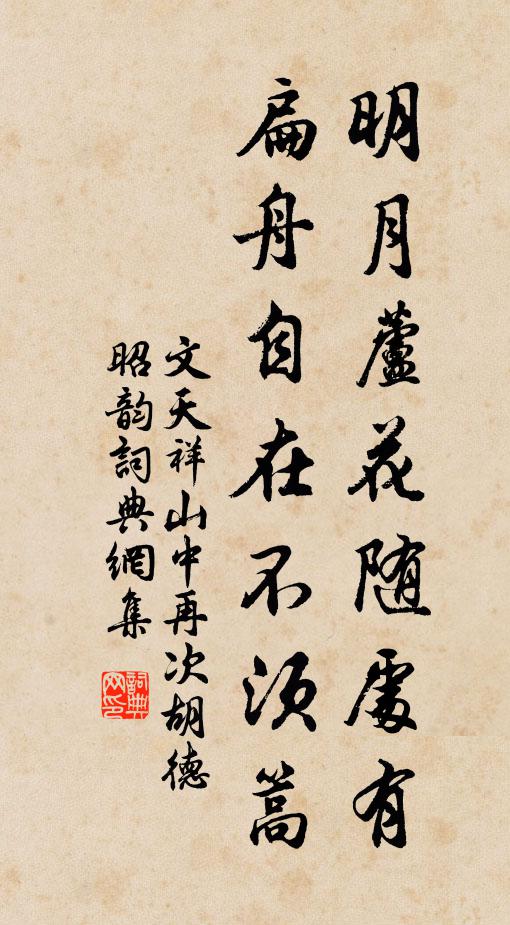 明月蘆花随處有
扁舟自在不須篙
文天祥山中再次胡德
昭韵詞典網集
詞典
网印